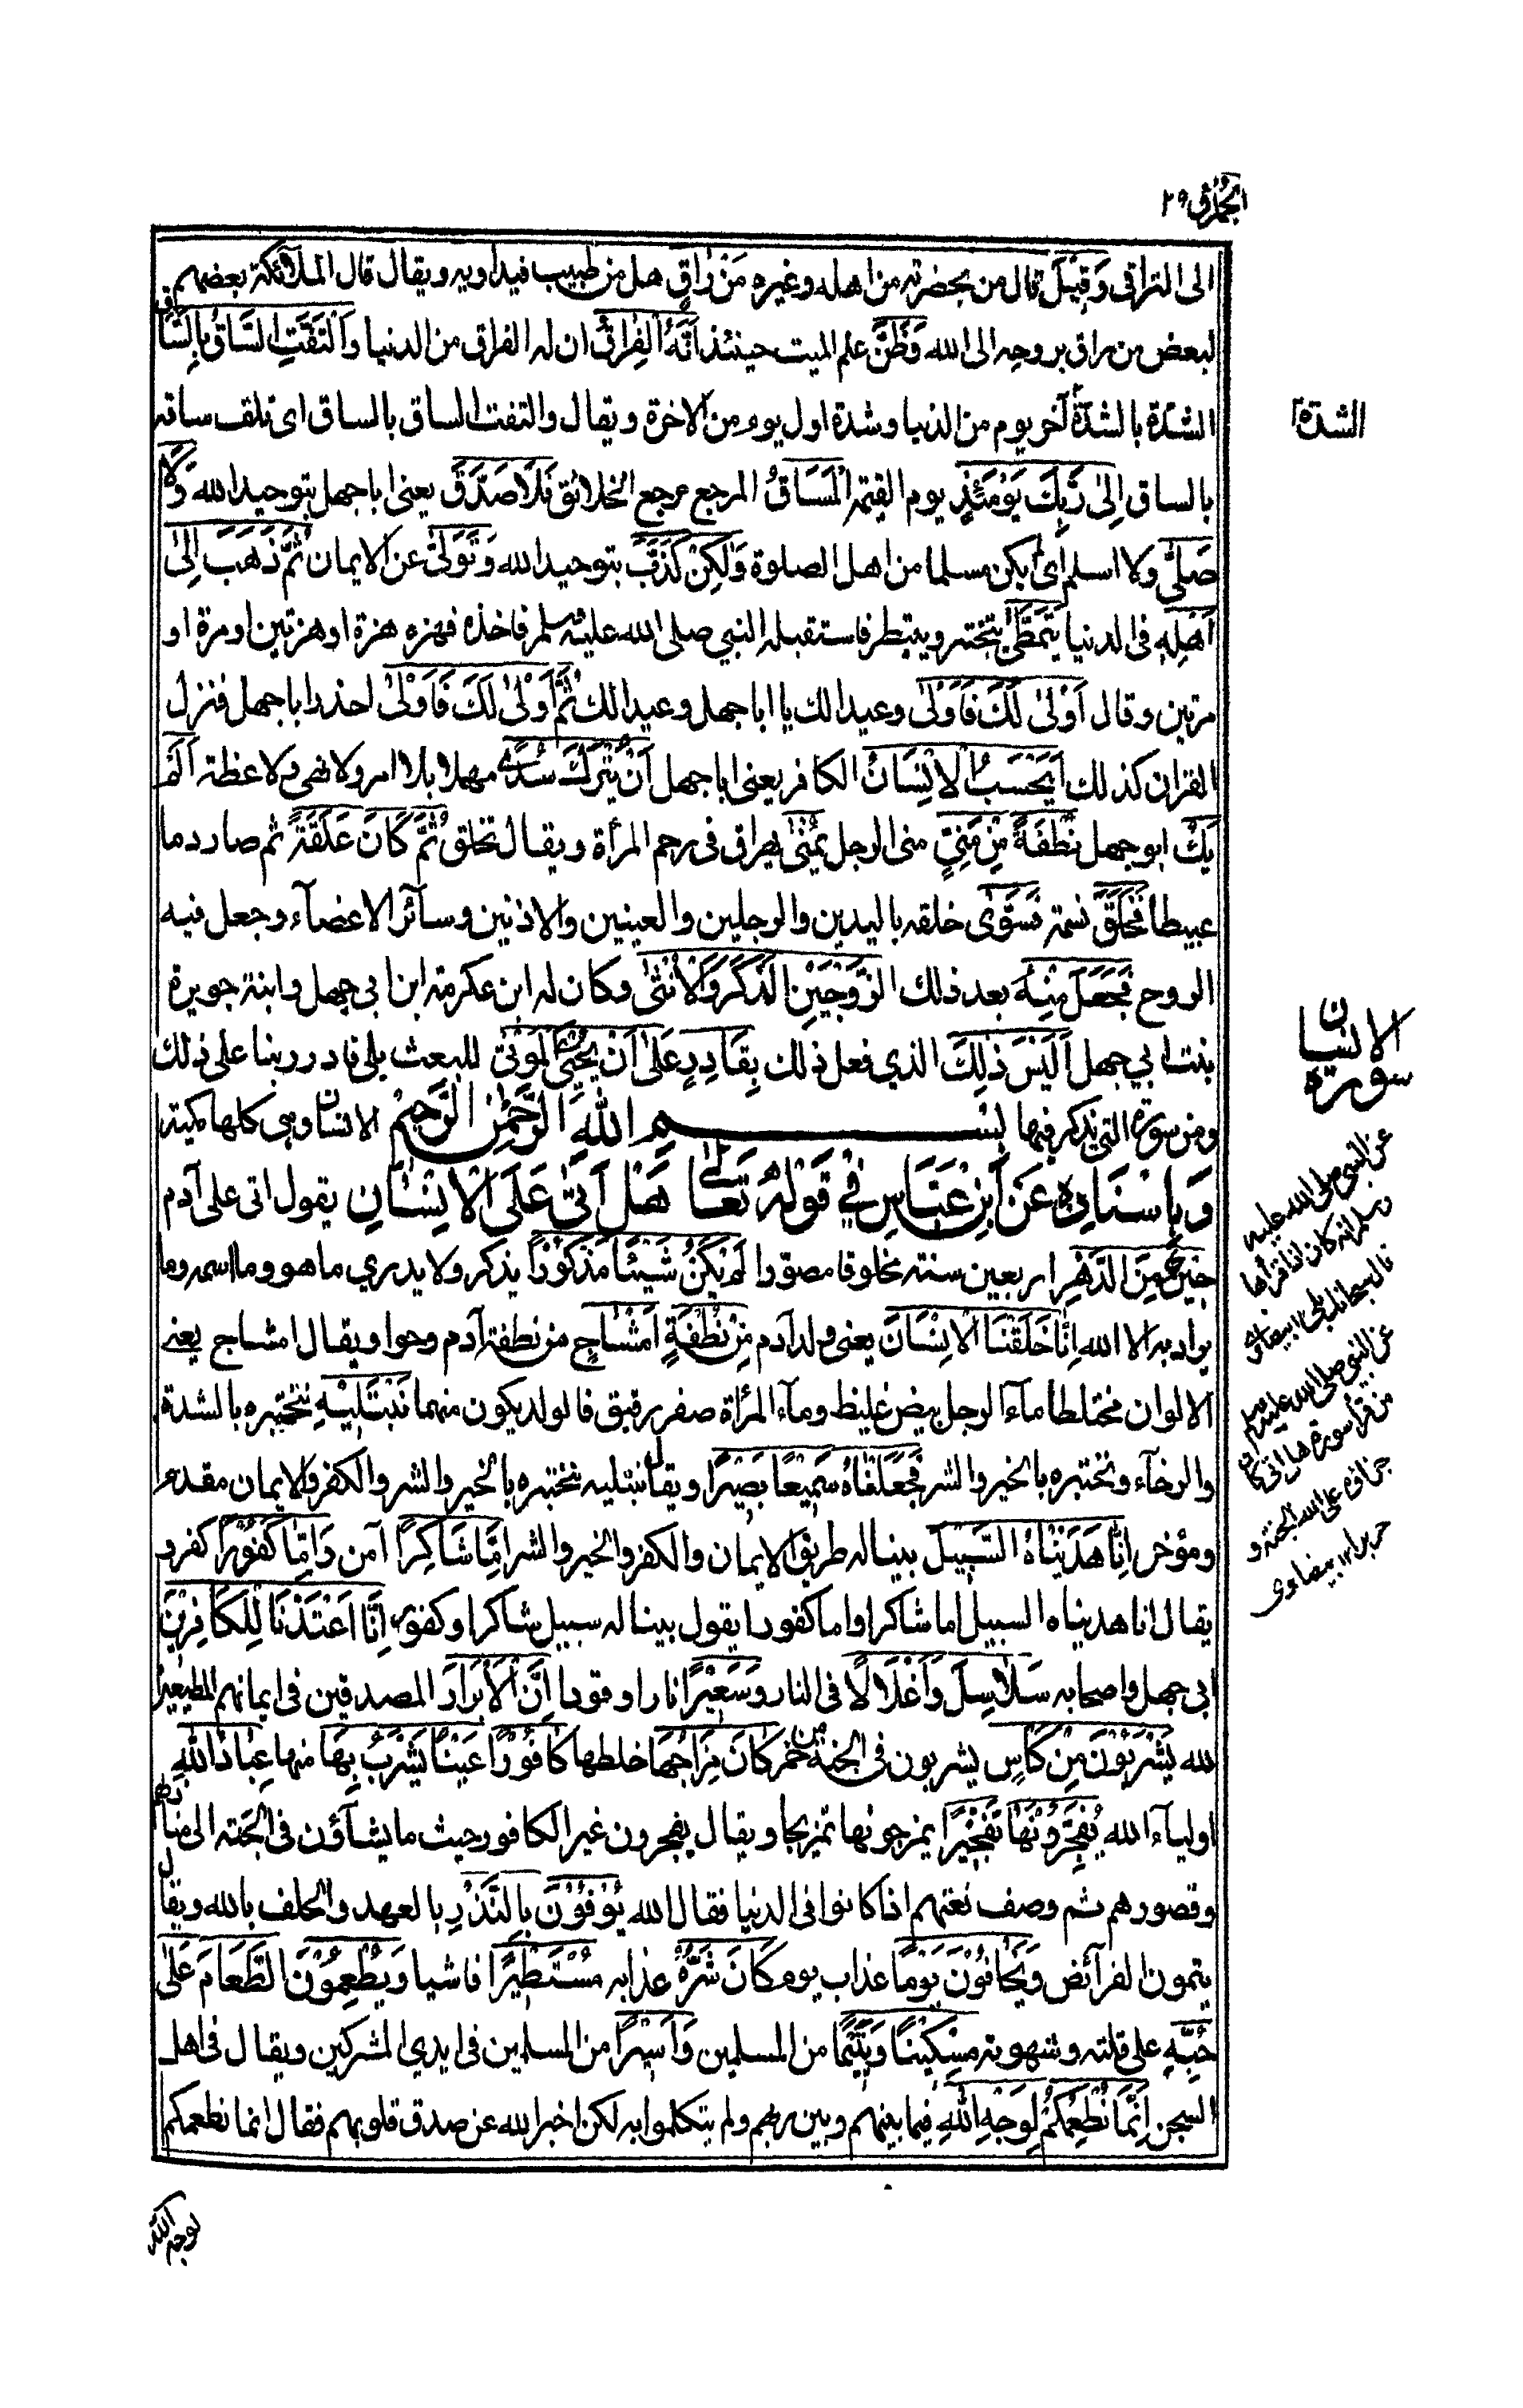 الجزء ٢٩
الى التراقى وَقِيْلَ قال من بحضرته من اهله وغيره مَنْ رَاقٍ هل من طبيب فيداويه ويقال قال الملآئكة بعضهم
لبعض من راق بروحه الى الله وَظَنَّ علم الميت حينئذ اَنَّهُ الْفِرَاقُ ان له الفراق من الدنيا وَالْتَفَّتِ السَّاقُ بِالسَّاقِ
الشدّة بالشدّة آخر يوم من الدنيا وشدة اول يوم من الاخرة ويقال والتفت الساق بالساق اى تلف ساقه
بالساق اِلٰى رَبِّكَ يَوْمَئِذٍ يوم القيٰمة الْمَسَاقُ المرجع مرجع الخلائق فَلَا صَدَّقَ يعنى ابا جهل بتوحيد الله وَلَا
صَلّٰى ولا اسلم اى يكن مسلما من اهل الصلوة وَلٰكِنْ كَذَّبَ بتوحيد الله وَتَوَلّٰى عن الايمان ثُمَّ ذَهَبَ اِلٰى
اَهْلِهٖ فى الدنيا يَتَمَطّٰى يتبختر ويتبطر فاستقبله النبي صلى الله عليه وسلم فاخذه فهزه هزة او هزتين او مرة او
مرتين وقال اَوْلٰى لَكَ فَاَوْلٰى وعيدا لك يا ابا جهل وعيدا لك ثُمَّ اَوْلٰى لَكَ فَاَوْلٰى احذر ابا جهل فنزل
القران كذلك اَيَحْسَبُ الْاِنْسَانُ الكافر يعنى ابا جهل اَنْ يُّتْرَكَ سُدًى مهملا بلا امر ولا نهى ولا عظة اَلَمْ
يَكُ ابو جهل نُطْفَةً مِّنْ مَّنِيٍّ منى الرجل يُمْنٰى يهراق فى رحم المرأة ويقال تخلق ثُمَّ كَانَ عَلَقَةً ثم صار دما
عبيطا فَخَلَقَ نسمة فَسَوّٰى خلقه باليدين والرجلين والعينين والاذنين وسآئر الاعضآء وجعل فيه
الروح فَجَعَلَ مِنْهُ بعد ذلك الزَّوْجَيْنِ الذَّكَرَ وَالْاُنْثٰى وكان له ابن عكرمة ابن ابي جهل وابنة جويرة
بنت ابي جهل اَلَيْسَ ذٰلِكَ الذي فعل ذلك بِقَادِرٍ عَلٰى اَنْ يُّحْيِۦَ الْمَوْتٰى للبعث بلى قادر ربنا على ذلك
ومن سورة التي يذكر فيها بِسْمِ اللهِ الرَّحْمٰنِ الرَّحِيْمِ الانسان وهى كلها مكية
وَبِاِسْنَادِهٖ عَنْ اِبْنِ عَبَّاسٍ فِيْ قَوْلِهٖ تَعَالٰى هَلْ اَتٰى عَلَى الْاِنْسَانِ يقول اتى على آدم
حِيْنٌ مِّنَ الدَّهْرِ اربعين سنة مخلوقا مصوّرا لَمْ يَكُنْ شَيْئًا مَّذْكُوْرًا يذكر ولا يدري ما هو وما اسمه وما
يراد به الا الله اِنَّا خَلَقْنَا الْاِنْسَانَ يعنى ولد آدم مِنْ نُّطْفَةٍ اَمْشَاجٍ من نطفة آدم وحوا ويقال امشاج يعنى
الالوان مختلطا مآء الرجل ابيض غليظ ومآء المرأة صفر رقيق فالولد يكون منهما نَبْتَلِيْهِ نختبره بالشدة
والرخآء ونختبره بالخير والشر فَجَعَلْنَاهُ سَمِيْعًا بَصِيْرًا ويقال نبتليه نختبره بالخير والشر والكفر والايمان مقدم
ومؤخر اِنَّا هَدَيْنَاهُ السَّبِيْلَ بينا له طريق الايمان والكفر والخير والشر اِمَّا شَاكِرًا آمن وَاِمَّا كَفُوْرًا كفر و
يقال انا هديناه السبيل اما شاكرا واما كفورا يقول بينا له سبيل شاكرا وكفور اِنَّا اَعْتَدْنَا لِلْكَافِرِيْنَ
ابى جهل واصحابه سَلَاسِلَ وَاَغْلَالًا فى النار وَسَعِيْرًا نارا وقودا اِنَّ الْاَبْرَارَ المصدقين فى ايمانهم المطيعين
لله يَشْرَبُوْنَ مِنْ كَاْسٍ يشربون فى الجنة من خمر كَانَ مِزَاجُهَا خلطها كَافُوْرًا عَيْنًا يَّشْرَبُ بِهَا منها عِبَادُ اللهِ
اوليآء الله يُفَجِّرُوْنَهَا تَفْجِيْرًا يمزجونها تمزيجا ويقال يفجرون غير الكافور حيث ما يشآؤن فى الجنة الى منازلهم
وقصورهم ثم وصف نعتهم اذا كانوا فى الدنيا فقال الله يُوْفُوْنَ بِالنَّذْرِ بالعهد والحلف بالله ويقال
يتمون الفرآئض وَيَخَافُوْنَ يَوْمًا عذاب يوم كَانَ شَرُّهٗ عذابه مُسْتَطِيْرًا فاشيا وَيُطْعِمُوْنَ الطَّعَامَ عَلٰى
حُبِّهٖ على قلته وشهوته مِسْكِيْنًا وَّيَتِيْمًا من المسلمين وَّاَسِيْرًا من المسلمين فى ايدي المشركين ويقال فى اهل
السجن اِنَّمَا نُطْعِمُكُمْ لِوَجْهِ اللهِ فيما بينهم وبين ربهم ولم يتكلموا به لكن اخبر الله عن صدق قلوبهم فقال انما نطعمكم
لوجه الله
الشدة
سورة الانسان
عن النبي صلى الله عليه
وسلم انه كان اذا قرأها
قال سبحانك بلى ١٢ بيضاوي
عن النبي صلى الله عليه وسلم
من قرأ سورة هل اتى كان
جزاؤه على الله الجنة و
حريرا ١٢ بيضاوى